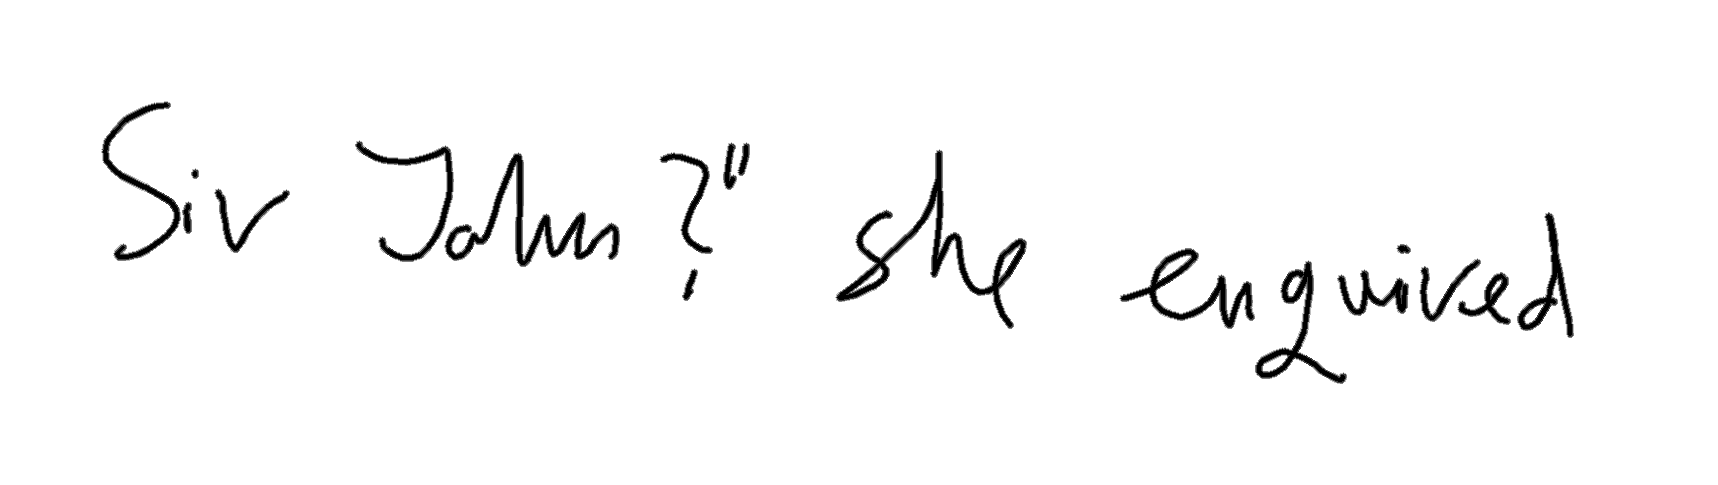 Sir John?" she enquired